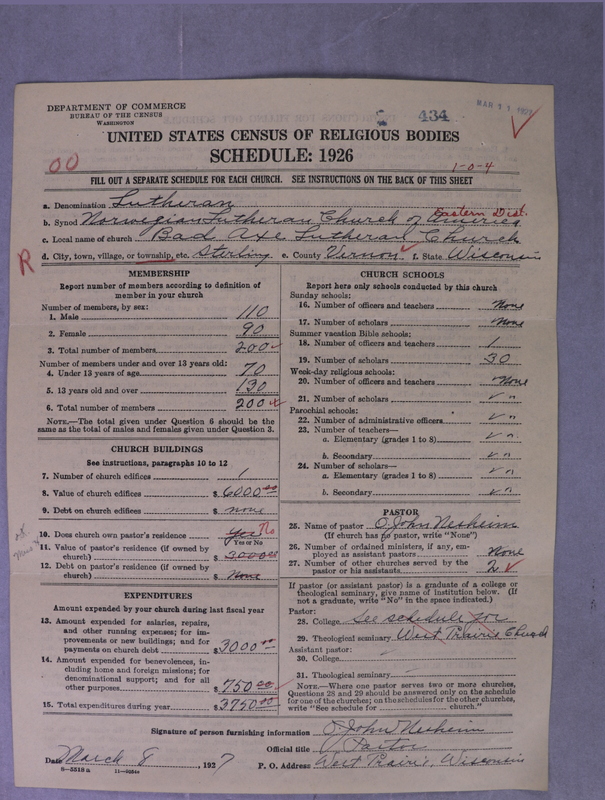 DEPARTMENT OF COMMERCE
BUREAU OF THE CENSUS
WASHINGTON
434
MAR 11 1927
UNITED STATES CENSUS OF RELIGIOUS BODIES
SCHEDULE: 1926
00
1-0-4
FILL OUT A SEPARATE SCHEDULE FOR EACH CHURCH. SEE INSTRUCTIONS ON THE BACK OF THIS SHEET
a. Denomination Lutheran
b. Synod Norwegian Lutheran Church of America Eastern Dist.
c. Local name of church Bad Axe Lutheran Church
R
d. City, town, village, or township, etc. Sterling e. County Vernon f. State Wisconsin
MEMBERSHIP
Report number of members according to definition of
member in your church
Number of members, by sex:
1. Male 110
2. Female 90
3. Total number of members 200
Number of members under and over 13 years old:
4. Under 13 years of age 70
5. 13 years old and over 130
6. Total number of members 200
NOTE.—The total given under Question 6 should be the
same as the total of males and females given under Question 3.
CHURCH BUILDINGS
See instructions, paragraphs 10 to 12
7. Number of church edifices 1
8. Value of church edifices $6000.00
9. Debt on church edifices $ none
10. Does church own pastor's residence Yes No
Yes or No
11. Value of pastor's residence (if owned by
church) $3000.00
12. Debt on pastor's residence (if owned by
church) $ None
EXPENDITURES
Amount expended by your church during last fiscal year
13. Amount expended for salaries, repairs,
and other running expenses; for im-
provements or new buildings; and for
payments on church debt $3000.00
14. Amount expended for benevolences, in-
cluding home and foreign missions; for
denominational support; and for all
other purposes $750.00
15. Total expenditures during year $3750.00
CHURCH SCHOOLS
Report here only schools conducted by this church
Sunday schools:
16. Number of officers and teachers None
17. Number of scholars None
Summer vacation Bible schools:
18. Number of officers and teachers 1
19. Number of scholars 30
Week-day religious schools:
20. Number of officers and teachers None
21. Number of scholars " "
Parochial schools:
22. Number of administrative officers " "
23. Number of teachers—
a. Elementary (grades 1 to 8) " "
b. Secondary " "
24. Number of scholars—
a. Elementary (grades 1 to 8) " "
b. Secondary " "
PASTOR
25. Name of pastor O. John Nesheim
(If church has no pastor, write "None")
26. Number of ordained ministers, if any, em-
ployed as assistant pastors None
27. Number of other churches served by the
pastor or his assistants 2
If pastor (or assistant pastor) is a graduate of a college or
theological seminary, give name of institution below. (If
not a graduate, write "No" in the space indicated.)
Pastor:
28. College see schedule for
29. Theological seminary West Prairie Church
Assistant pastor:
30. College
31. Theological seminary
NOTE.—Where one pastor serves two or more churches,
Questions 28 and 29 should be answered only on the schedule
for one of the churches; on the schedules for the other churches,
write "See schedule for church."
Signature of person furnishing information O John Nesheim
Official title Pastor
Date March 8, 1927 P. O. Address West Prairie, Wisconsin
8-5518a